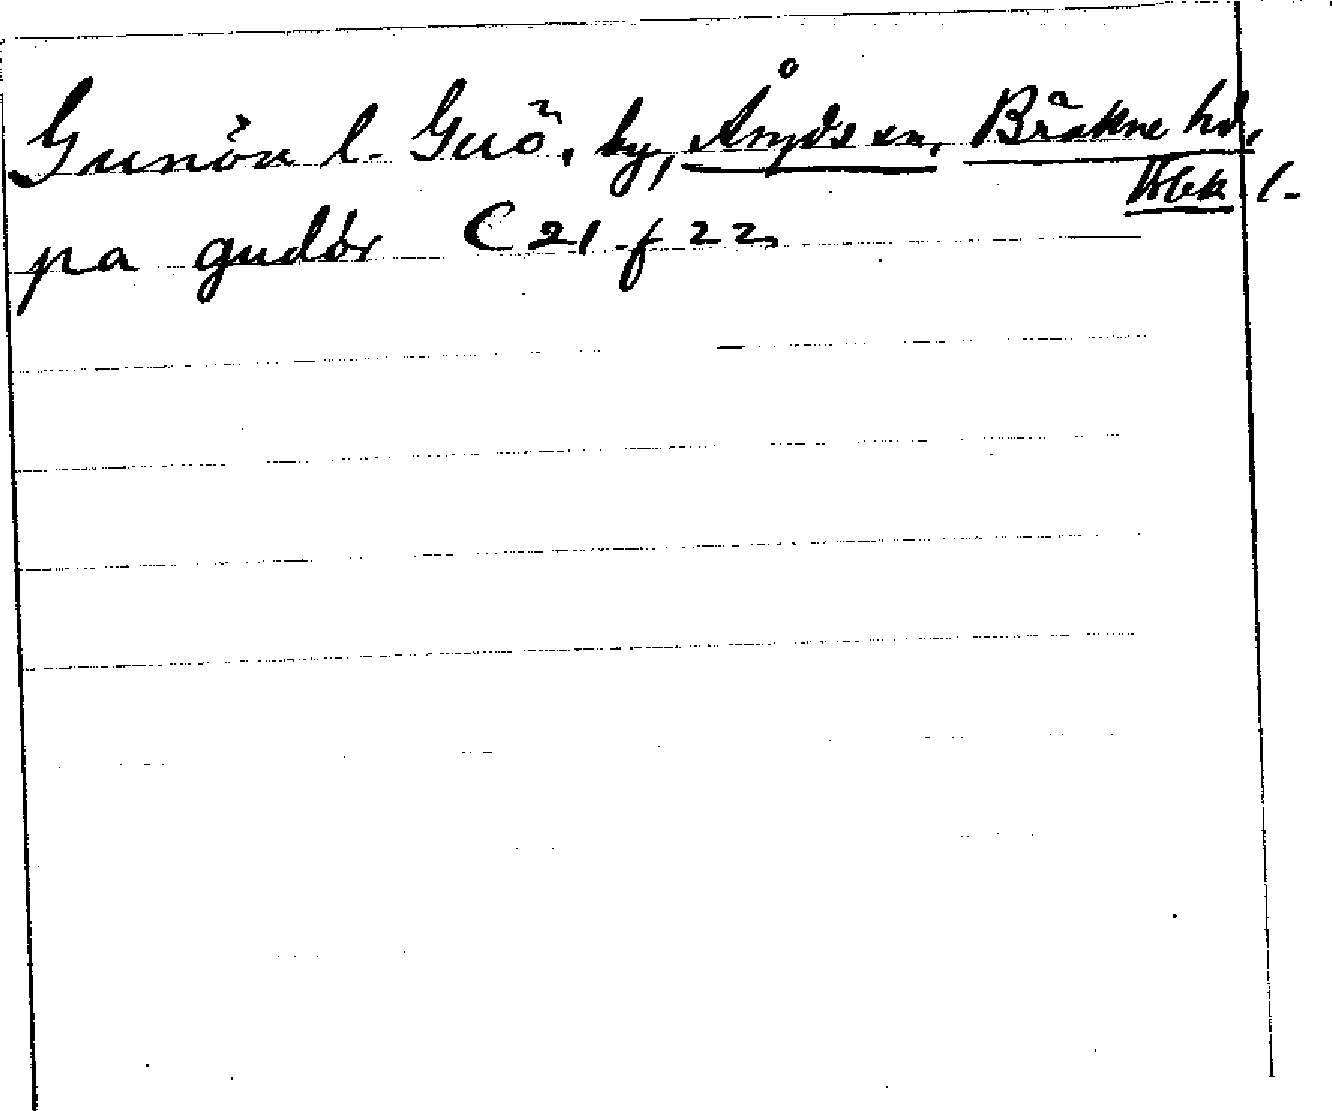 Gunön l. Guö, by, Åryds sn, Bräkne hd,
Blek l.
pa gudör C 21 f 22